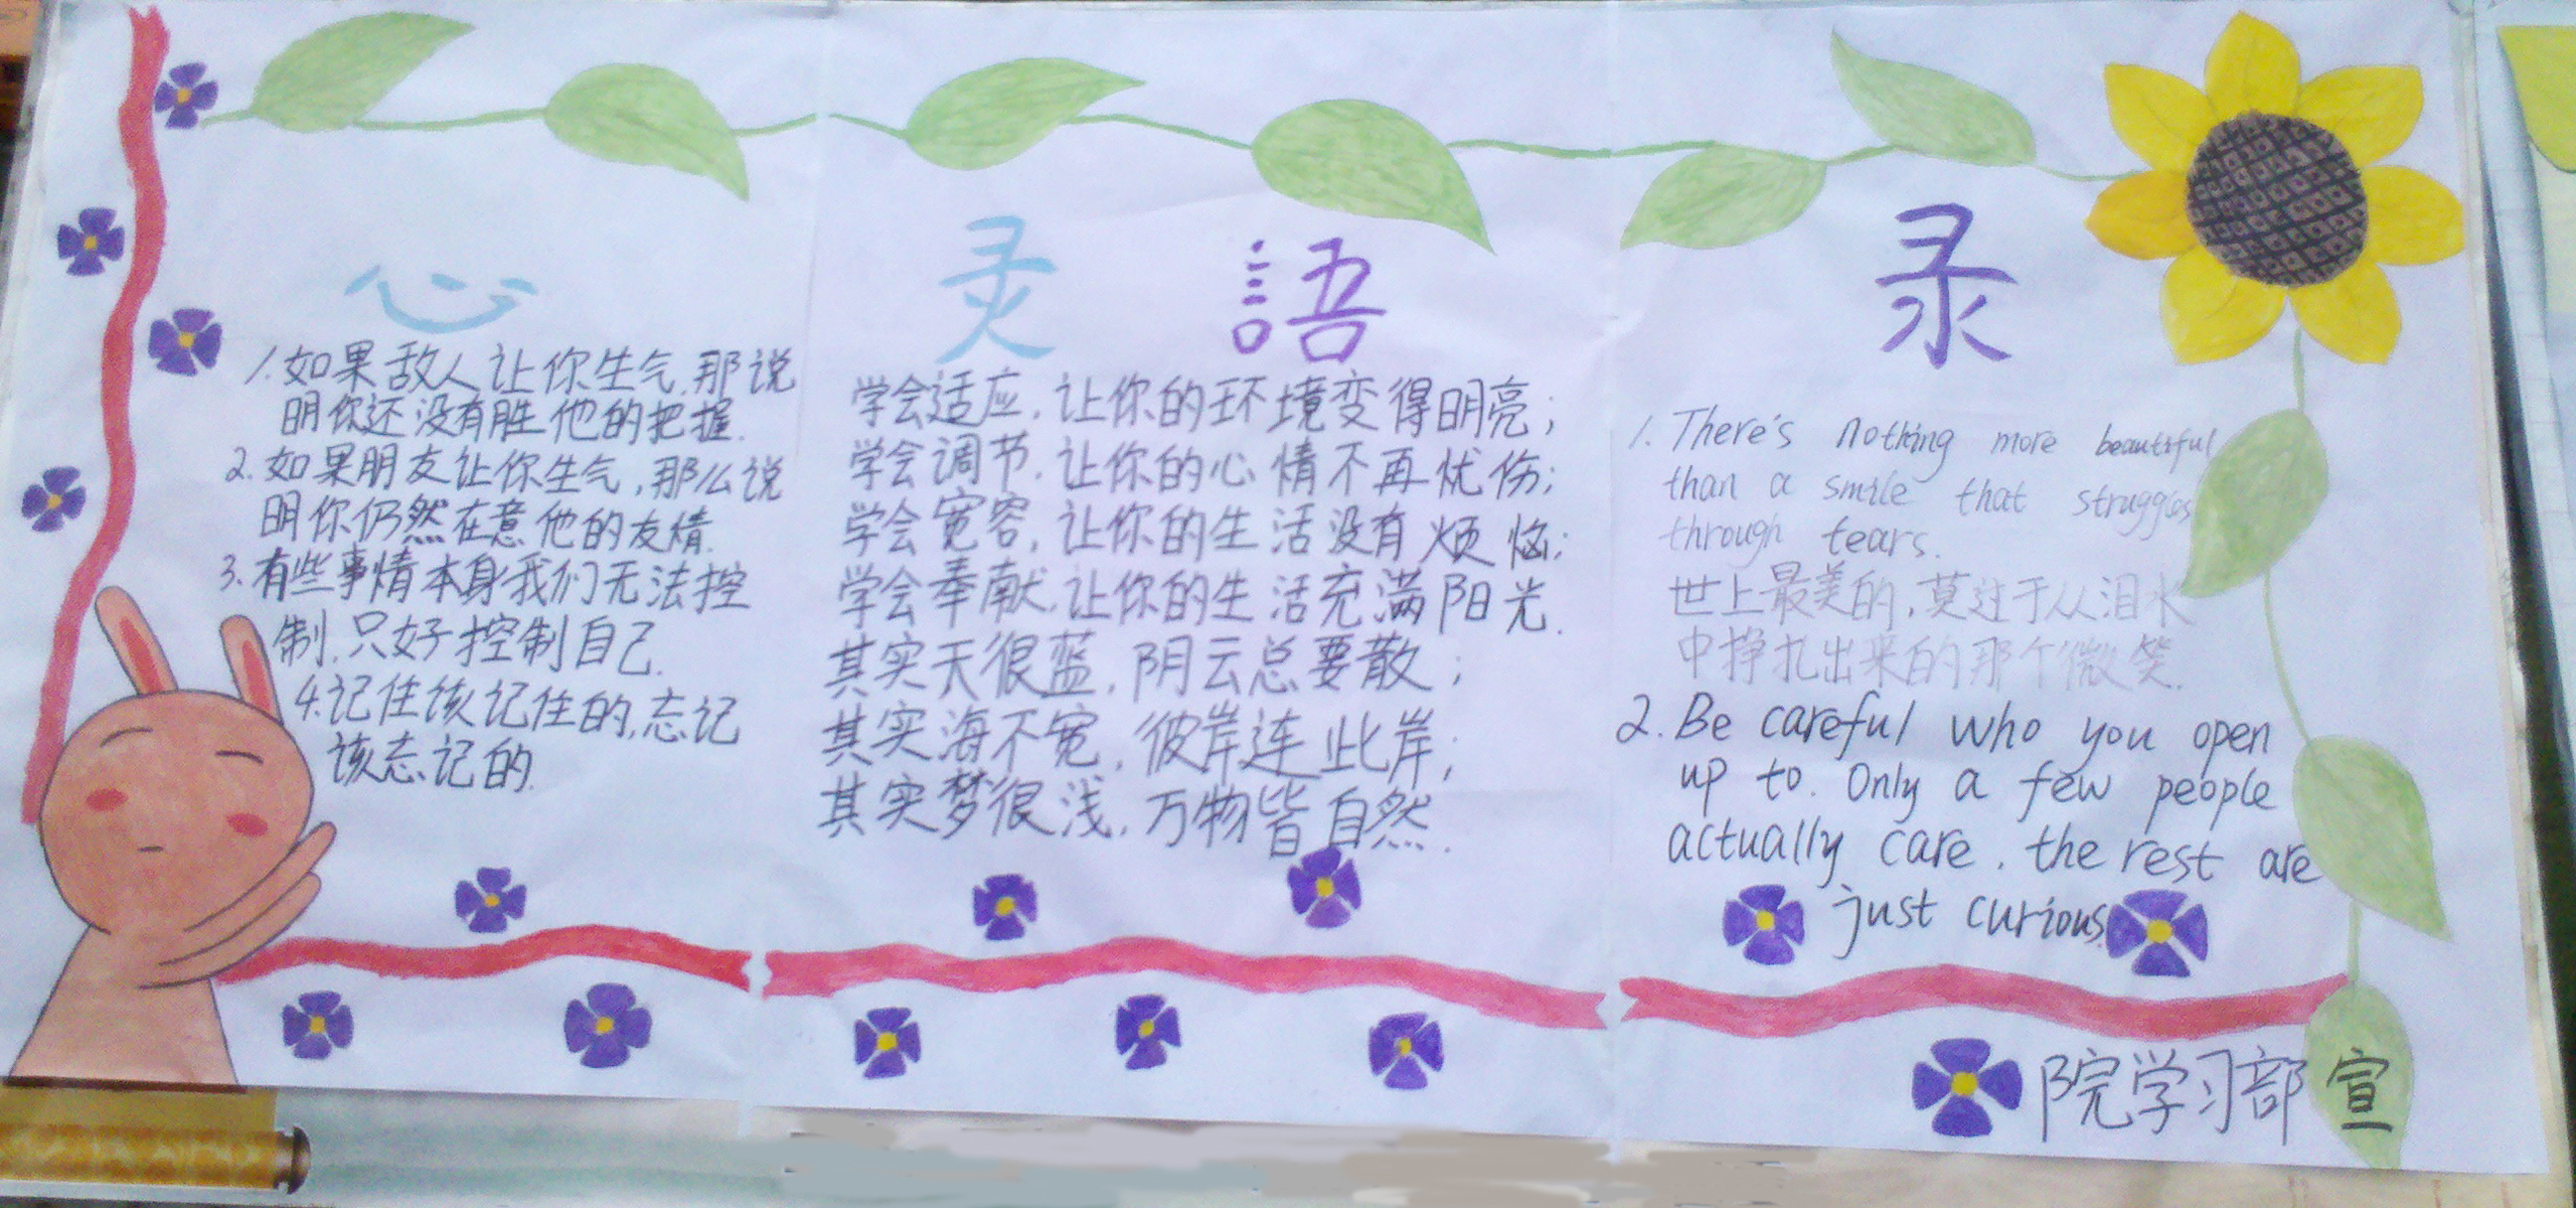 心 灵 語 录
1.如果敌人让你生气,那说
明你还没有胜他的把握.
2.如果朋友让你生气,那么说
明你仍然在意他的友情.
3.有些事情本身我们无法控
制,只好控制自己.
4.记住该记住的,忘记
该忘记的.
学会适应,让你的环境变得明亮;
学会调节,让你的心情不再忧伤;
学会宽容,让你的生活没有烦恼;
学会奉献,让你的生活充满阳光.
其实天很蓝,阴云总要散;
其实海不宽,彼岸连此岸;
其实梦很浅,万物皆自然.
1. There's nothing more beautiful
than a smile that struggles
through tears.
世上最美的,莫过于从泪水
中挣扎出来的那个微笑.
2. Be careful who you open
up to. Only a few people
actually care, the rest are
just curious.
院学习部 宣